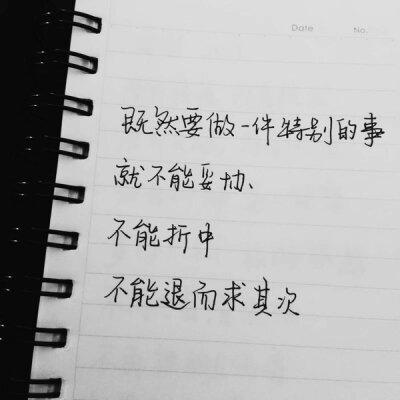 Date No.
既然要做一件特别的事
就不能妥协、
不能折中
不能退而求其次